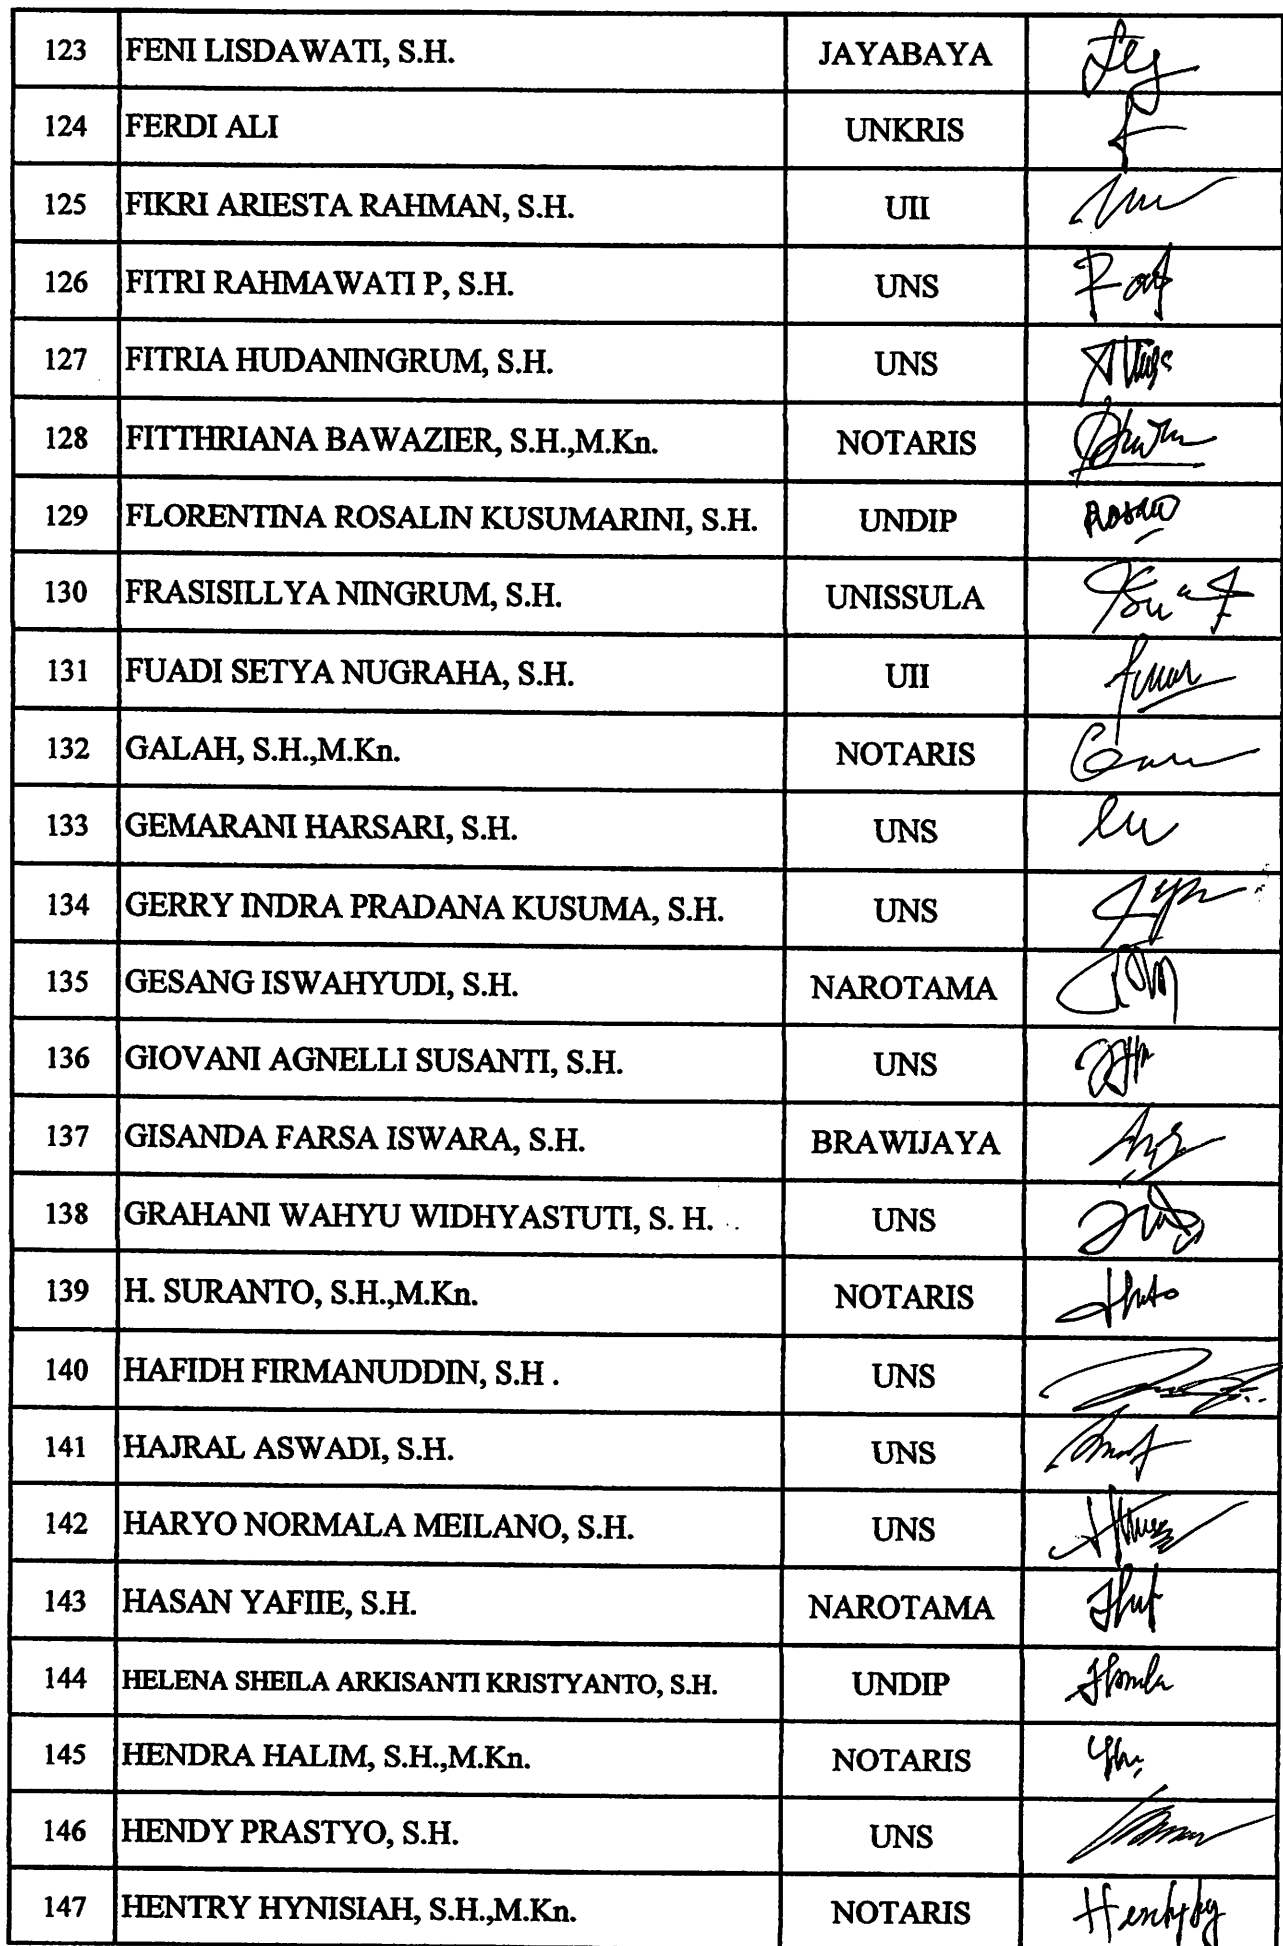 123 FENI LISDAWATI, S.H. JAYABAYA
124 FERDI ALI UNKRIS
125 FIKRI ARIESTA RAHMAN, S.H. UII
126 FITRI RAHMAWATI P, S.H. UNS
127 FITRIA HUDANINGRUM, S.H. UNS
128 FITTHRIANA BAWAZIER, S.H.,M.Kn. NOTARIS
129 FLORENTINA ROSALIN KUSUMARINI, S.H. UNDIP
130 FRASISILLYA NINGRUM, S.H. UNISSULA
131 FUADI SETYA NUGRAHA, S.H. UII
132 GALAH, S.H.,M.Kn. NOTARIS
133 GEMARANI HARSARI, S.H. UNS
134 GERRY INDRA PRADANA KUSUMA, S.H. UNS
135 GESANG ISWAHYUDI, S.H. NAROTAMA
136 GIOVANI AGNELLI SUSANTI, S.H. UNS
137 GISANDA FARSA ISWARA, S.H. BRAWIJAYA
138 GRAHANI WAHYU WIDHYASTUTI, S. H. UNS
139 H. SURANTO, S.H.,M.Kn. NOTARIS
140 HAFIDH FIRMANUDDIN, S.H . UNS
141 HAJRAL ASWADI, S.H. UNS
142 HARYO NORMALA MEILANO, S.H. UNS
143 HASAN YAFIIE, S.H. NAROTAMA
144 HELENA SHEILA ARKISANTI KRISTYANTO, S.H. UNDIP
145 HENDRA HALIM, S.H.,M.Kn. NOTARIS
146 HENDY PRASTYO, S.H. UNS
147 HENTRY HYNISIAH, S.H.,M.Kn. NOTARIS